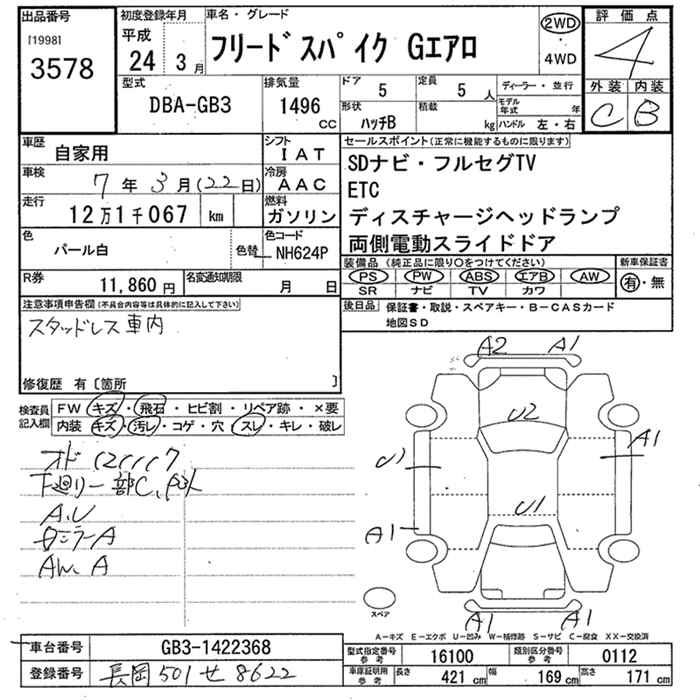 出品番号
[1998]
3578
初度登録年月
平成
24年 3月
車名・グレード
フリードスパイク Gエアロ
2WD
4WD
評価点
4
外装 内装
C B
型式
DBA-GB3
排気量
1496
CC
ドア 5
定員 5人
形状 ハッチB
積載 kg
ディーラー・並行
モデル年式 年
ハンドル 左・右
車歴 自家用
シフト IAT
車検 7年3月(22日)
冷房 AAC
走行 12万1千067 km
燃料 ガソリン
色 パール白
色替
色コード NH624P
R券 11,860円
名変通知期限 月 日
セールスポイント(正常に機能するものに限ります)
SDナビ・フルセグTV
ETC
ディスチャージヘッドランプ
両側電動スライドドア
装備品(純正品に限り〇をつけてください)
新車保証書
PS PW ABS エアB AW
SR ナビ TV カワ
有・無
後日品 保証書・取説・スペアキー・B-CASカード
地図SD
注意事項申告欄(不具合内容等は具体的に記入して下さい)
スタッドレス車内
修復歴 有〔箇所 〕
検査員記入欄
FW キズ・飛石・ヒビ割・リペア跡・×要
内装 キズ・汚レ・コゲ・穴・スレ・キレ・破レ
下廻り一部C、
A,U
Aw、A
A2 A1
U2
A1
U1
U1
A1
A1 A1
スペア
A-キズ E-エクボ U-凹み W-補修跡 S-サビ C-腐食 XX-交換済
車台番号 GB3-1422368
登録番号 長岡501せ8622
型式指定番号 参考 16100
類別区分番号 参考 0112
車庫証明用 参考 長さ 421cm 幅 169cm 高さ 171cm